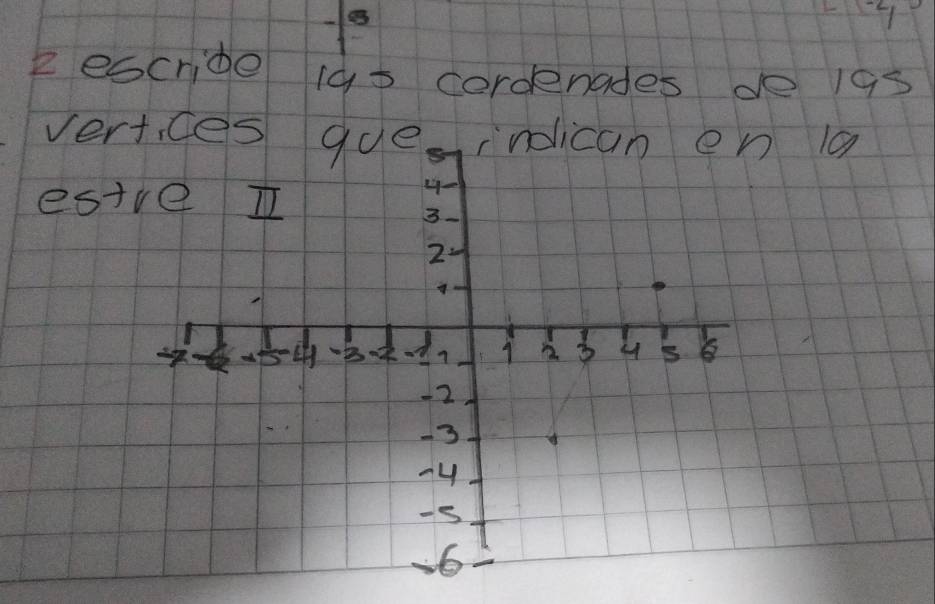 -8
2 escribe las cordenades de las
vertices que indican en la
estre II
5
4
3
2
1
-7 -6 -5 -4 -3 -2 -1 1 2 3 4 5 6
-1
-2
-3
-4
-5
-6